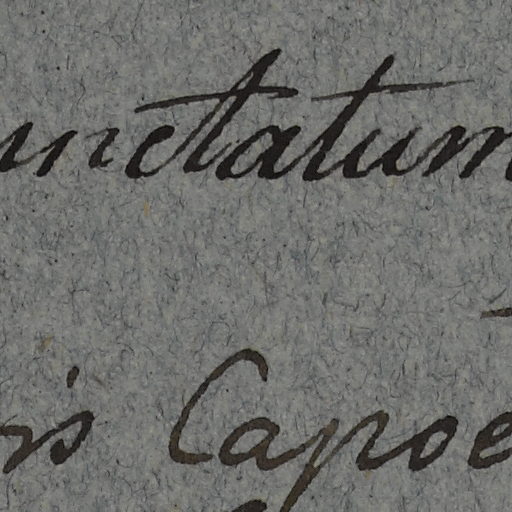 unctatum
is Capoe